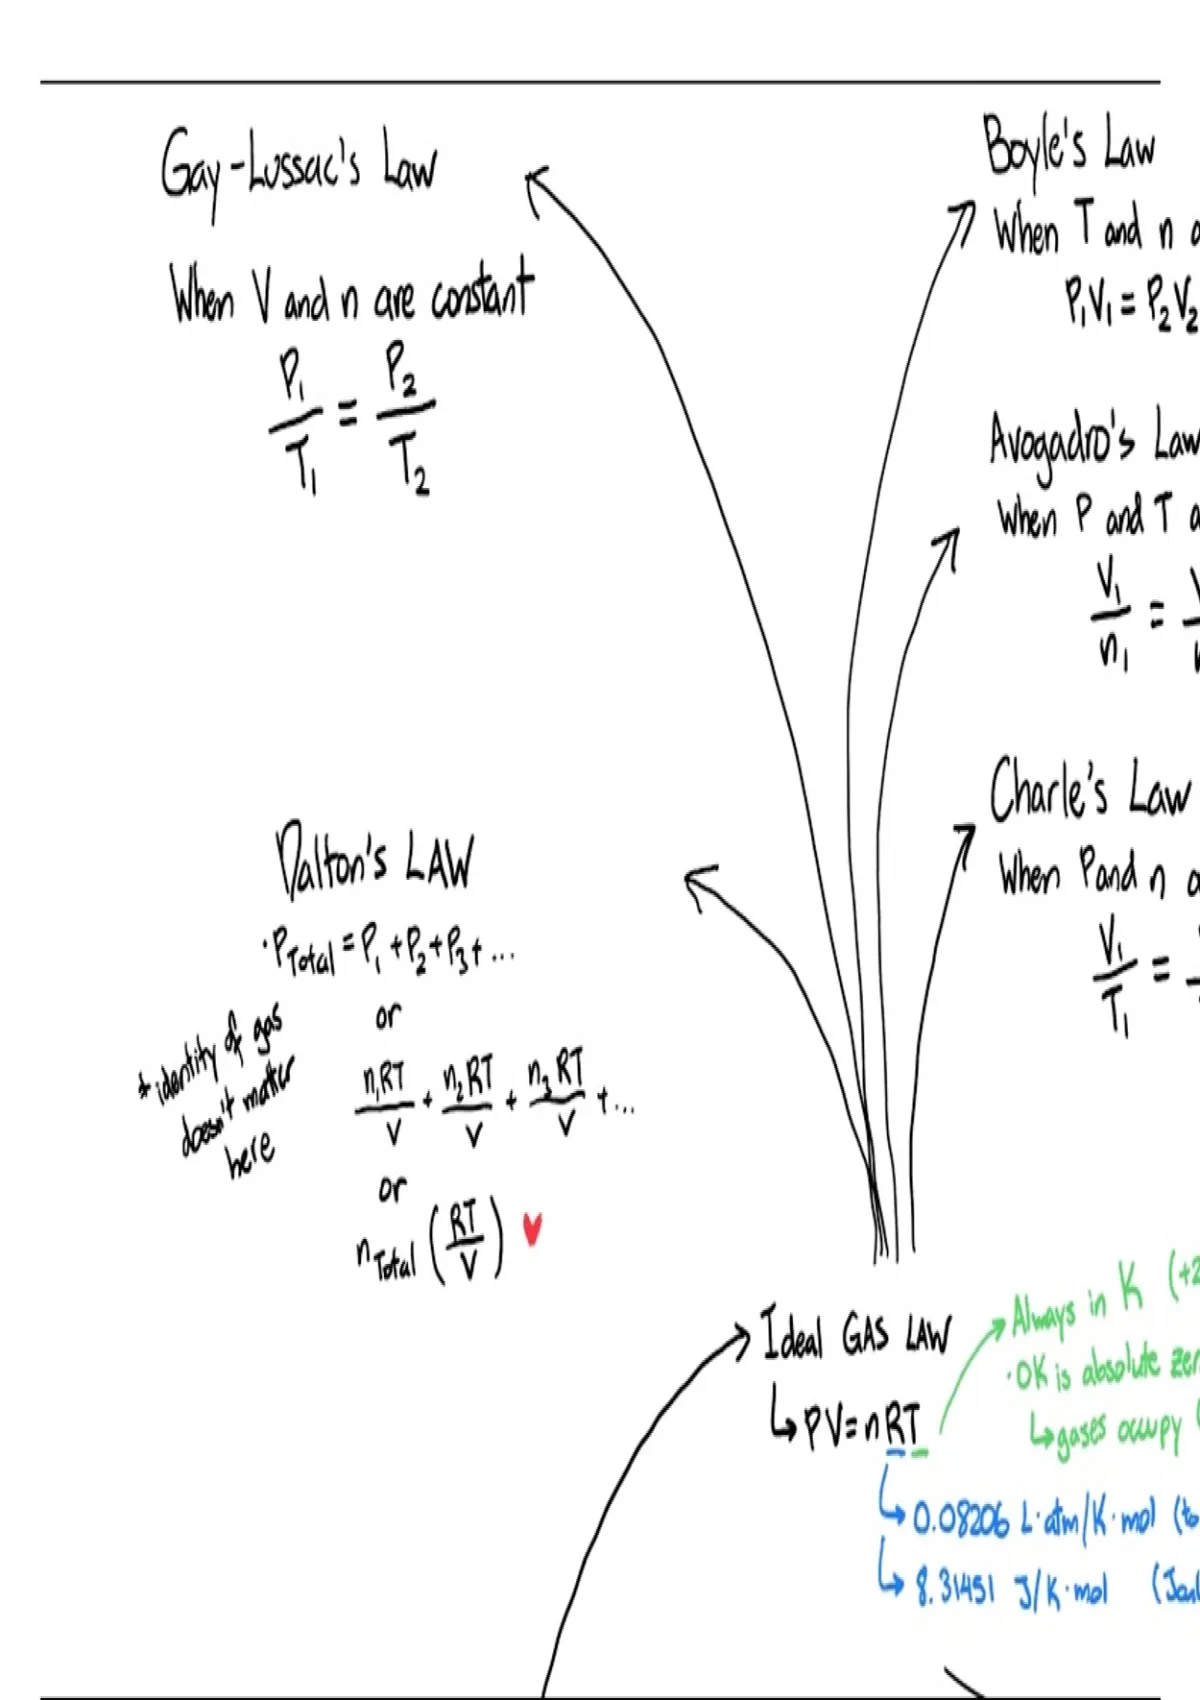 Gay-Lussac's Law
When V and n are constant
P₁/T₁ = P₂/T₂
Boyle's Law
When T and n
P₁V₁ = P₂V₂
Avogadro's Law
When P and T
V₁/n₁ =
Charle's Law
When P and n
V₁/T₁ =
Dalton's LAW
·P Total = P₁ + P₂ + P₃ + ...
or
n₁RT/V + n₂RT/V + n₃RT/V + ...
or
n Total (RT/V) ♥
* identity of gas
doesn't matter
here
Ideal GAS LAW
↳ PV = nRT
Always in K (+2
·0K is absolute zer
↳ gases occupy (
↳ 0.08206 L·atm/K·mol (to
↳ 8.31451 J/K·mol (Joul